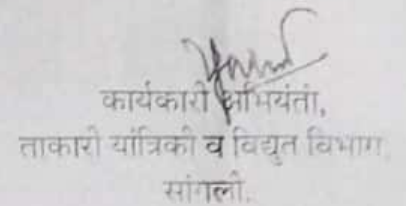 कार्यकारी अभियंता,
ताकारी यांत्रिकी व विद्युत विभाग,
सांगली.